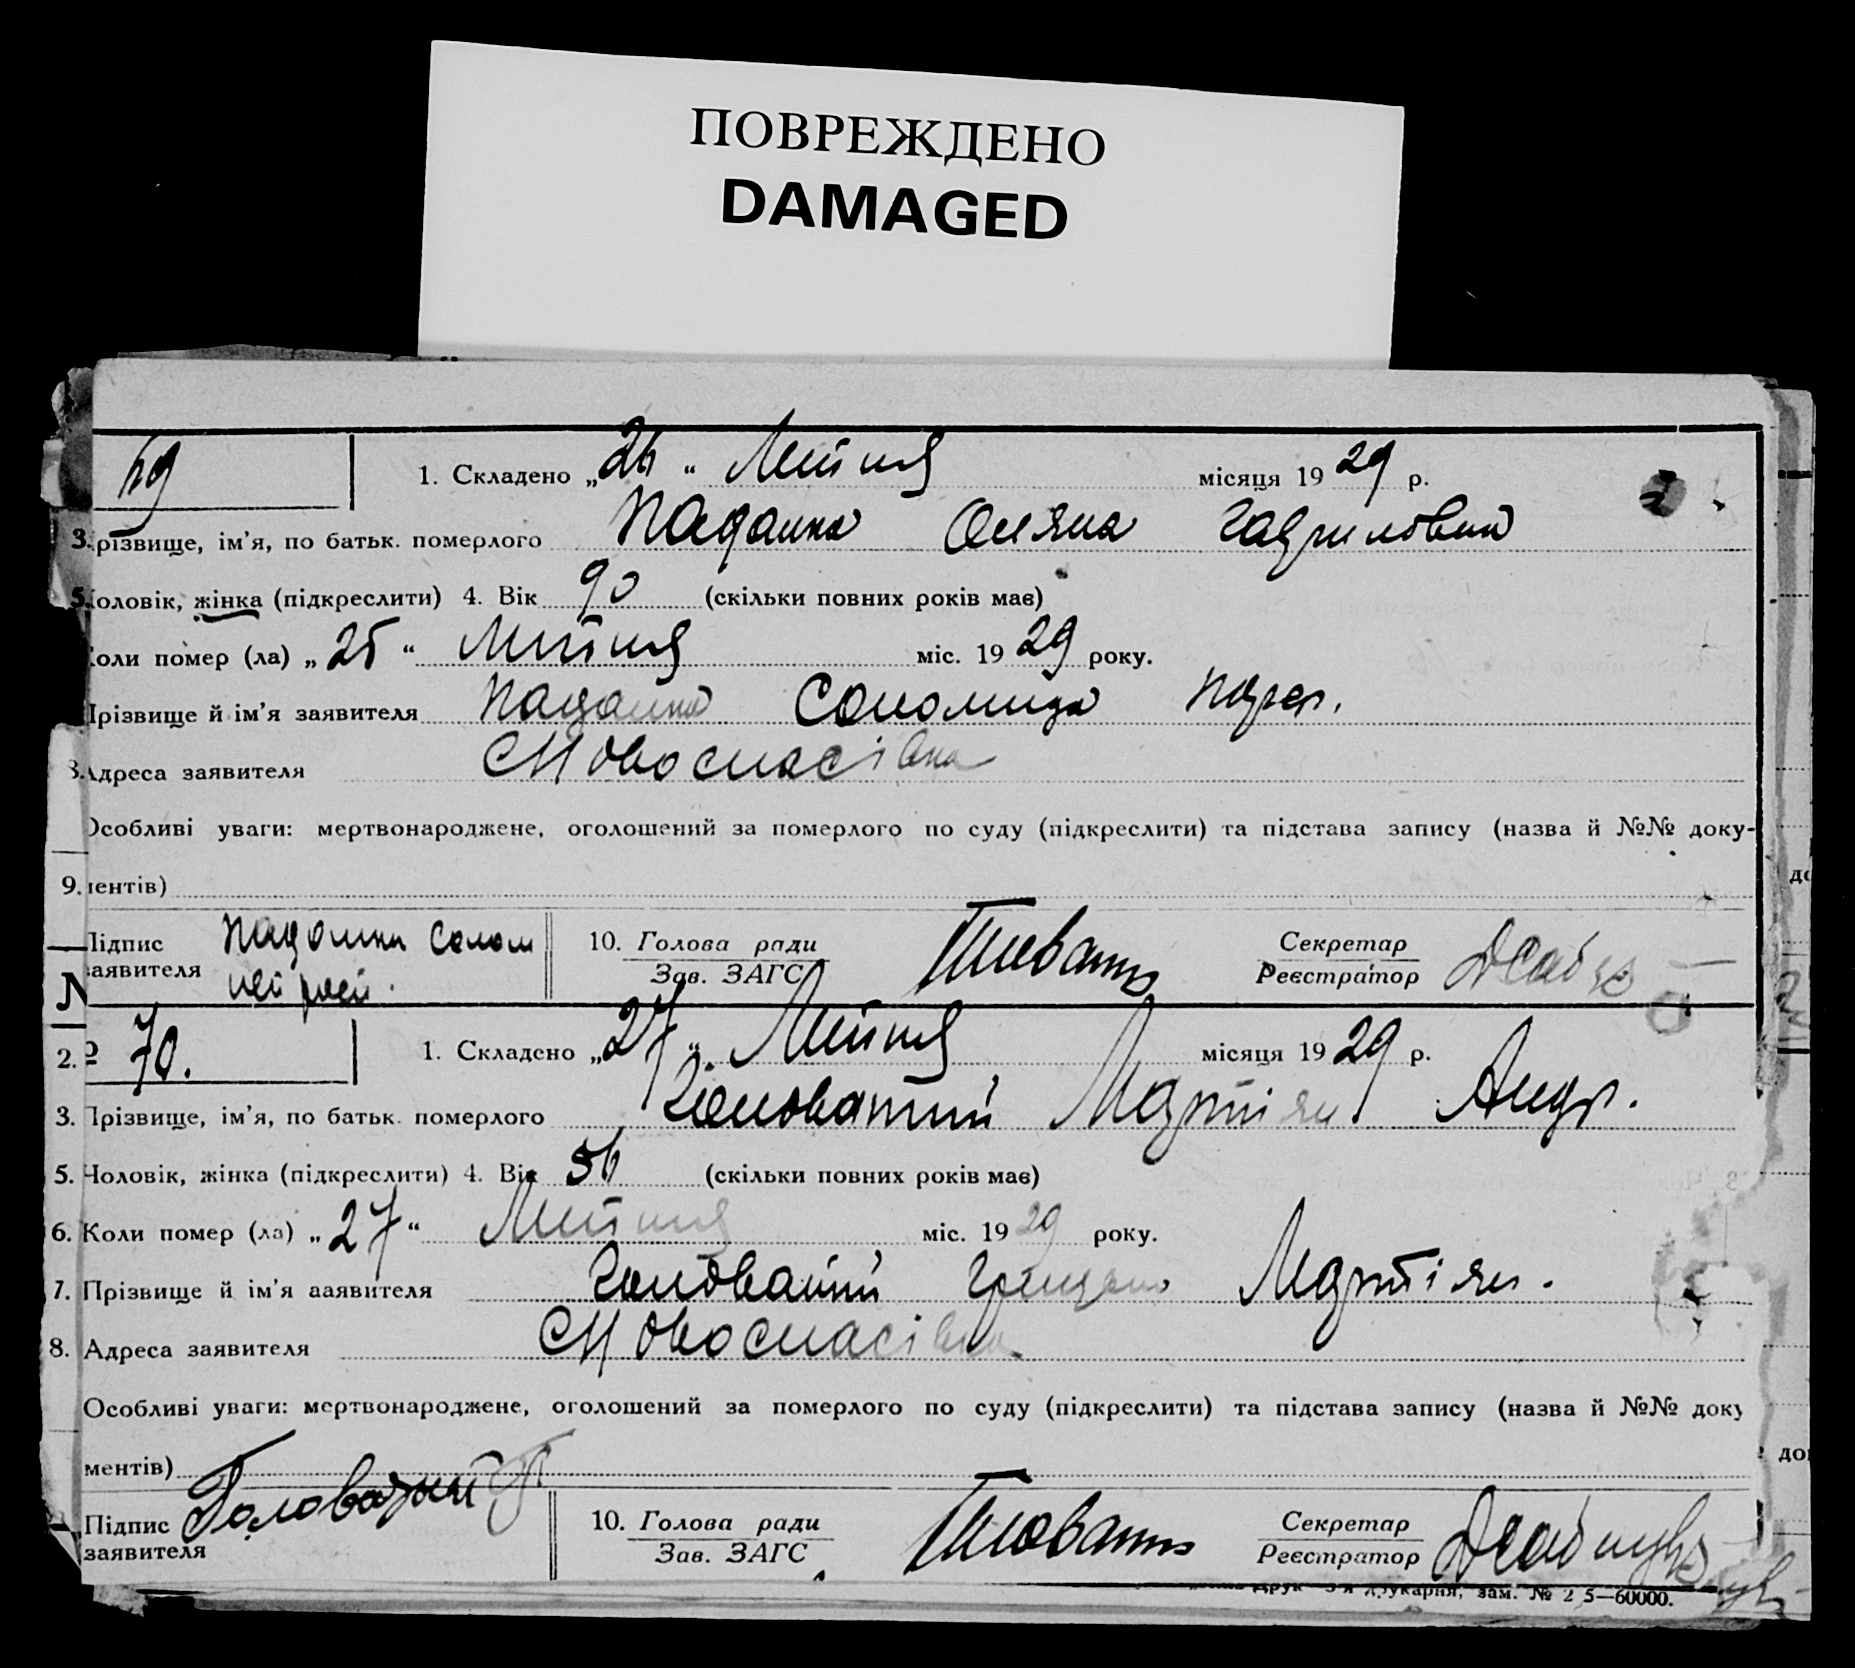 ПОВРЕЖДЕНО
DAMAGED
69 1. Складено „26“ Липня місяця 1929 р.
3. різвище, ім'я, по батьк. померлого Падалка Оляна Гавриловна
5. оловік, жінка (підкреслити) 4. Вік 90 (скільки повних років має)
оли помер (ла) „25“ Липня міс. 1929 року.
Прізвище й ім'я заявителя Падалка Соломида
8. Адреса заявителя С Новоспасівка
Особливі уваги: мертвонароджене, оголошений за померлого по суду (підкреслити) та підстава запису (назва й №№ доку-
9. ментів)
Підпис заявителя Падалка Солом 10. Голова ради Секретар
Зав. ЗАГС Реєстратор
2. 70. 1. Складено „27“ Липня місяця 1929 р.
3. Прізвище, ім'я, по батьк. померлого Головатий Мартіян Андр.
5. Чоловік, жінка (підкреслити) 4. Вік 56 (скільки повних років має)
6. Коли помер (ла) „27“ Липня міс. 1929 року.
7. Прізвище й ім'я заявителя Головатий Грицько Мартіян.
8. Адреса заявителя С Новоспасівка
Особливі уваги: мертвонароджене, оголошений за померлого по суду (підкреслити) та підстава запису (назва й №№ доку
ментів)
Підпис Головатий Г 10. Голова ради Секретар
заявителя Зав. ЗАГС Реєстратор
друкарня, зам. № 2 5—60000.